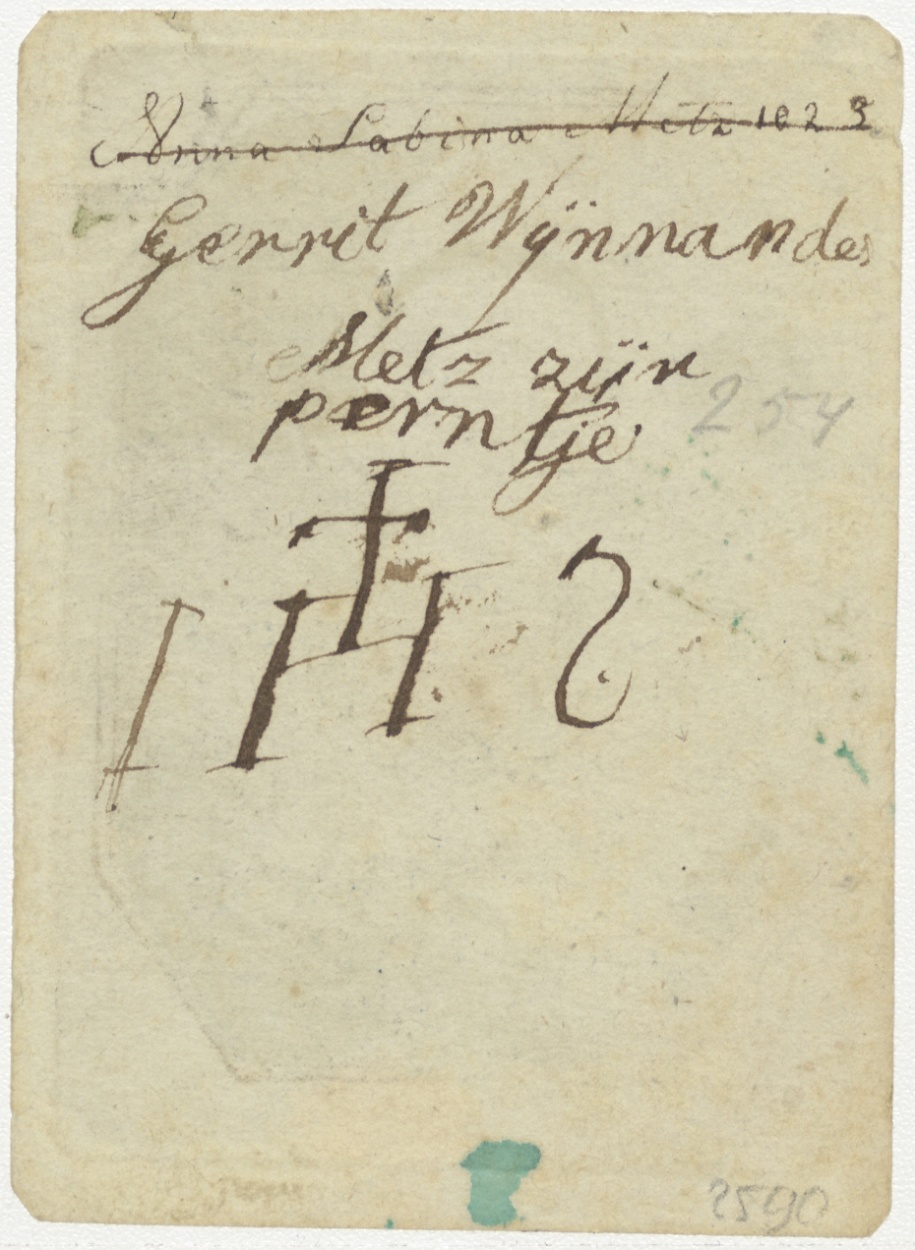 Anna Sabina Metz 1823
Gerrit Wÿnnandes
Metz zÿn
perntje
254
IHS
2590